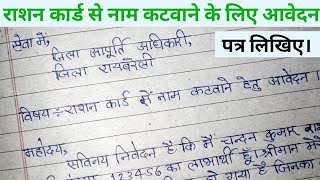 राशन कार्ड से नाम कटवाने के लिए आवेदन
पत्र लिखिए।
सेवा में,
जिला आपूर्ति अधिकारी,
जिला रायबरेली
विषय:- राशन कार्ड से नाम कटवाने हेतु आवेदन।
महोदय,
सविनय निवेदन है कि मैं चन्दन कुमार
123456 का लाभार्थी हूँ। श्रीमान मेरे
गया है जिनका